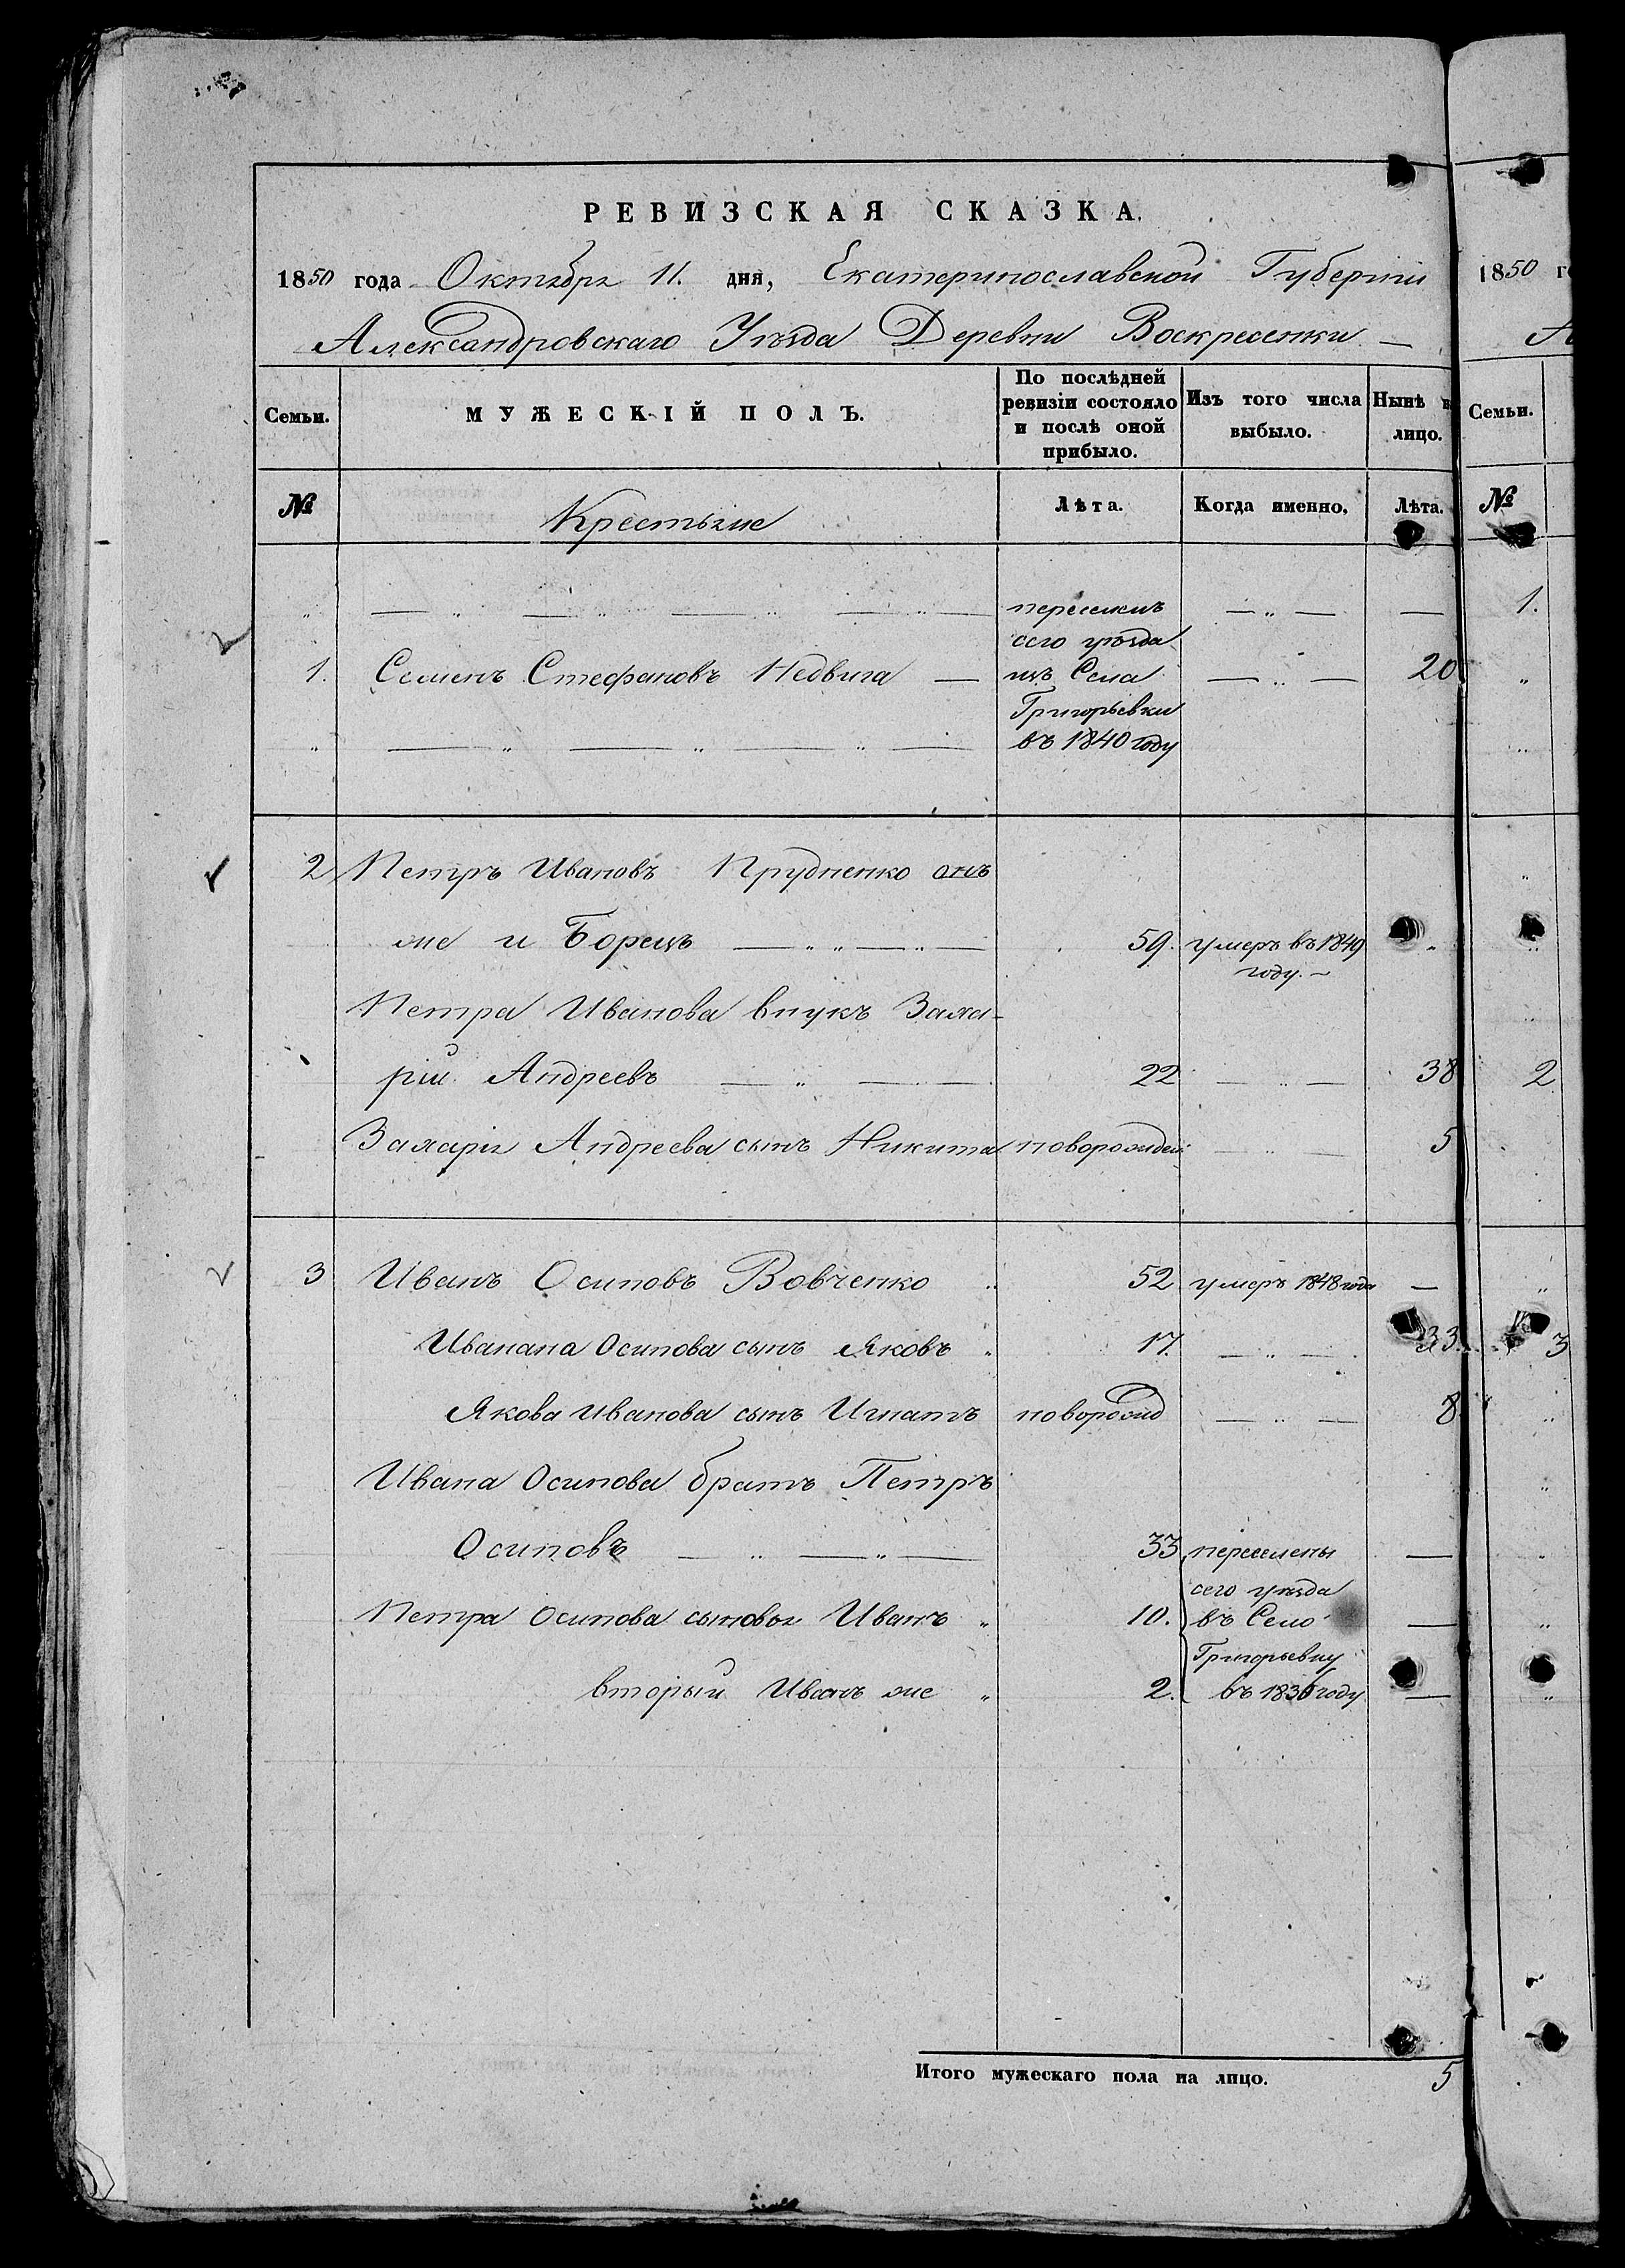 РЕВИЗСКАЯ СКАЗКА.
1850 года Октября 11. дня, Екатеринославской Губерніи
Александровскаго Уѣзда Деревни Воскресенки
Семьи. МУЖЕСКІЙ ПОЛЪ. По послѣдней ревизіи состояло и послѣ оной прибыло. Изъ того числа выбыло. Нынѣ в лицо.
№ Крестьяне Лѣта. Когда именно, Лѣта.
переселенъ
сего уѣзда
1. Семенъ Стефановъ Недвига изъ Села 20
Григорьевки
въ 1840 году
2 Петръ Ивановъ Прудненко онъ
же и Борецъ 59. умеръ въ 1849
году.
Петра Иванова внукъ Заха-
рій Андреевъ 22 38
Захарія Андреева сынъ Никита новорожден: 5
3 Иванъ Осиповъ Вовченко 52 умеръ 1848 года
Иванана Осипова сынъ Яковъ 17. 33
Якова Иванова сынъ Игнатъ новорожд 8
Ивана Осипова братъ Петръ
Осиповъ 33 переселены
сего уѣзда
Петра Осипова сыновья Иванъ 10. въ Село
Григорьевку
вторый Иванъ же 2. въ 1836 году
Итого мужескаго пола на лицо. 5
1850 го
А
Семьи.
№
1.
2
3